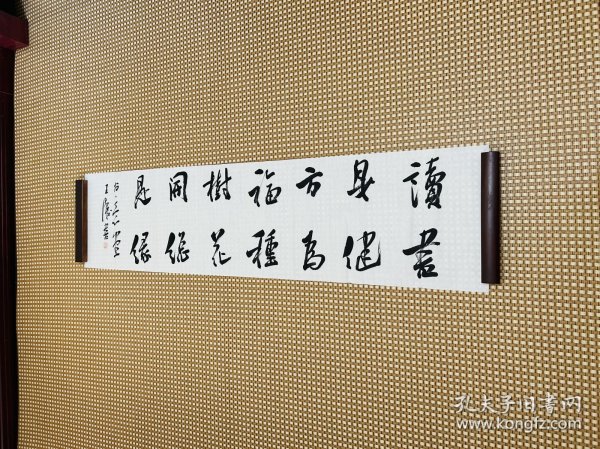 讀書
身健
方為
福種
樹花
開總
是緣
孔夫子旧书网
www.kongfz.com